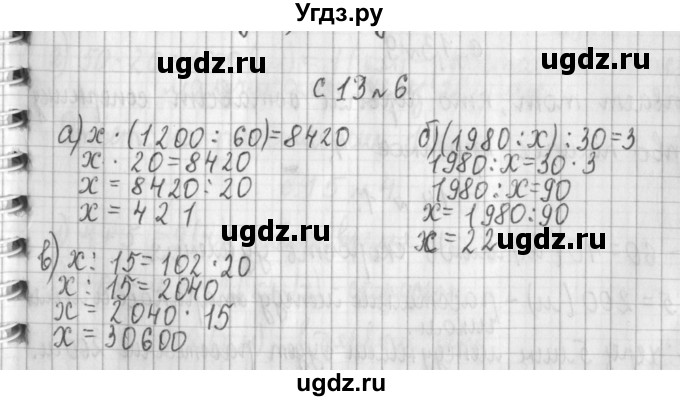 Угдз.ру
ugdz.ru
ugdz.ru
с 13 № 6
а) x · (1200 : 60) = 8420
x · 20 = 8420
x = 8420 : 20
x = 421
б) (1980 : x) : 30 = 3
1980 : x = 30 · 3
1980 : x = 90
x = 1980 : 90
x = 22
ugdz.ru
ugdz.ru
в) x : 15 = 102 · 20
x : 15 = 2040
x = 2040 · 15
x = 30600
ugdz.ru